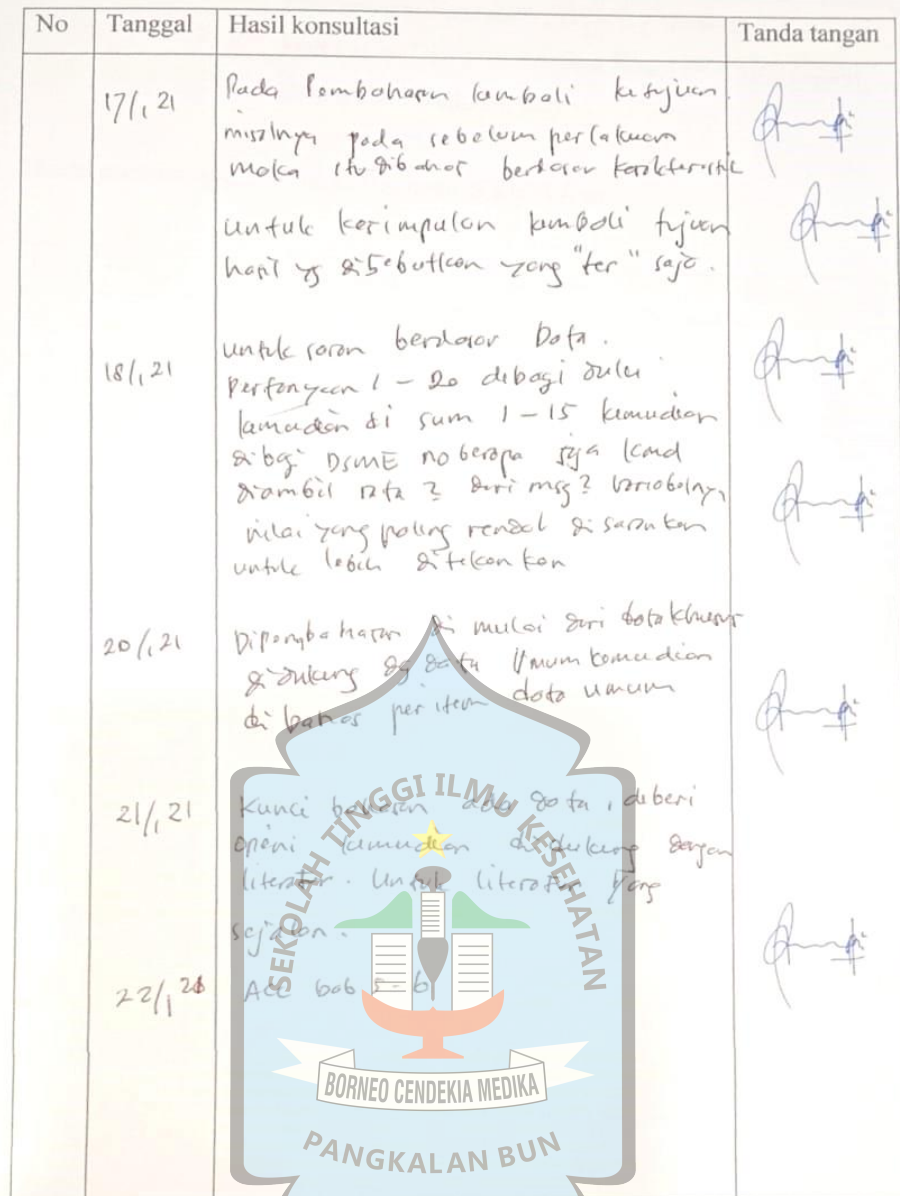 No Tanggal Hasil konsultasi Tanda tangan
17/1 21 Pada Pembahasan kembali ke tujuan
misalnya pada sebelum perlakuan
maka itu dibahas berdasar karakteristik
untuk kesimpulan kembali tujuan
hasil yg disebutkan yang "ter" saja.
18/1 21 untuk saran berdasar Data.
Pertanyaan 1 - 20 dibagi dulu
kemudian di sum 1 - 15 kemudian
dibagi DSME no berapa saja kmd
diambil rata2 dari msg2 variabelnya
nilai yang paling rendah disarankan
untuk lebih ditekankan
20/1 21 Dipembahasan di mulai dari data khusus
didukung dg data Umum kemudian
di bahas per item data umum
21/1 21 Kunci bahasan ada data, diberi
opini kemudian didukung dengan
literatur. Untuk literatur yang
sejalan.
22/1 21 Acc bab 5-6
SEKOLAH TINGGI ILMU KESEHATAN
BORNEO CENDEKIA MEDIKA
PANGKALAN BUN